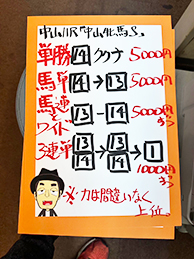 中山11R「中山牝馬S」
単勝 14 ククナ 5000円
馬単 14→13 5000円
馬連とワイド 13-14 5000円ずつ
3連単 13/14→13/14→1 1000円ずつ
※力は間違いなく上位。